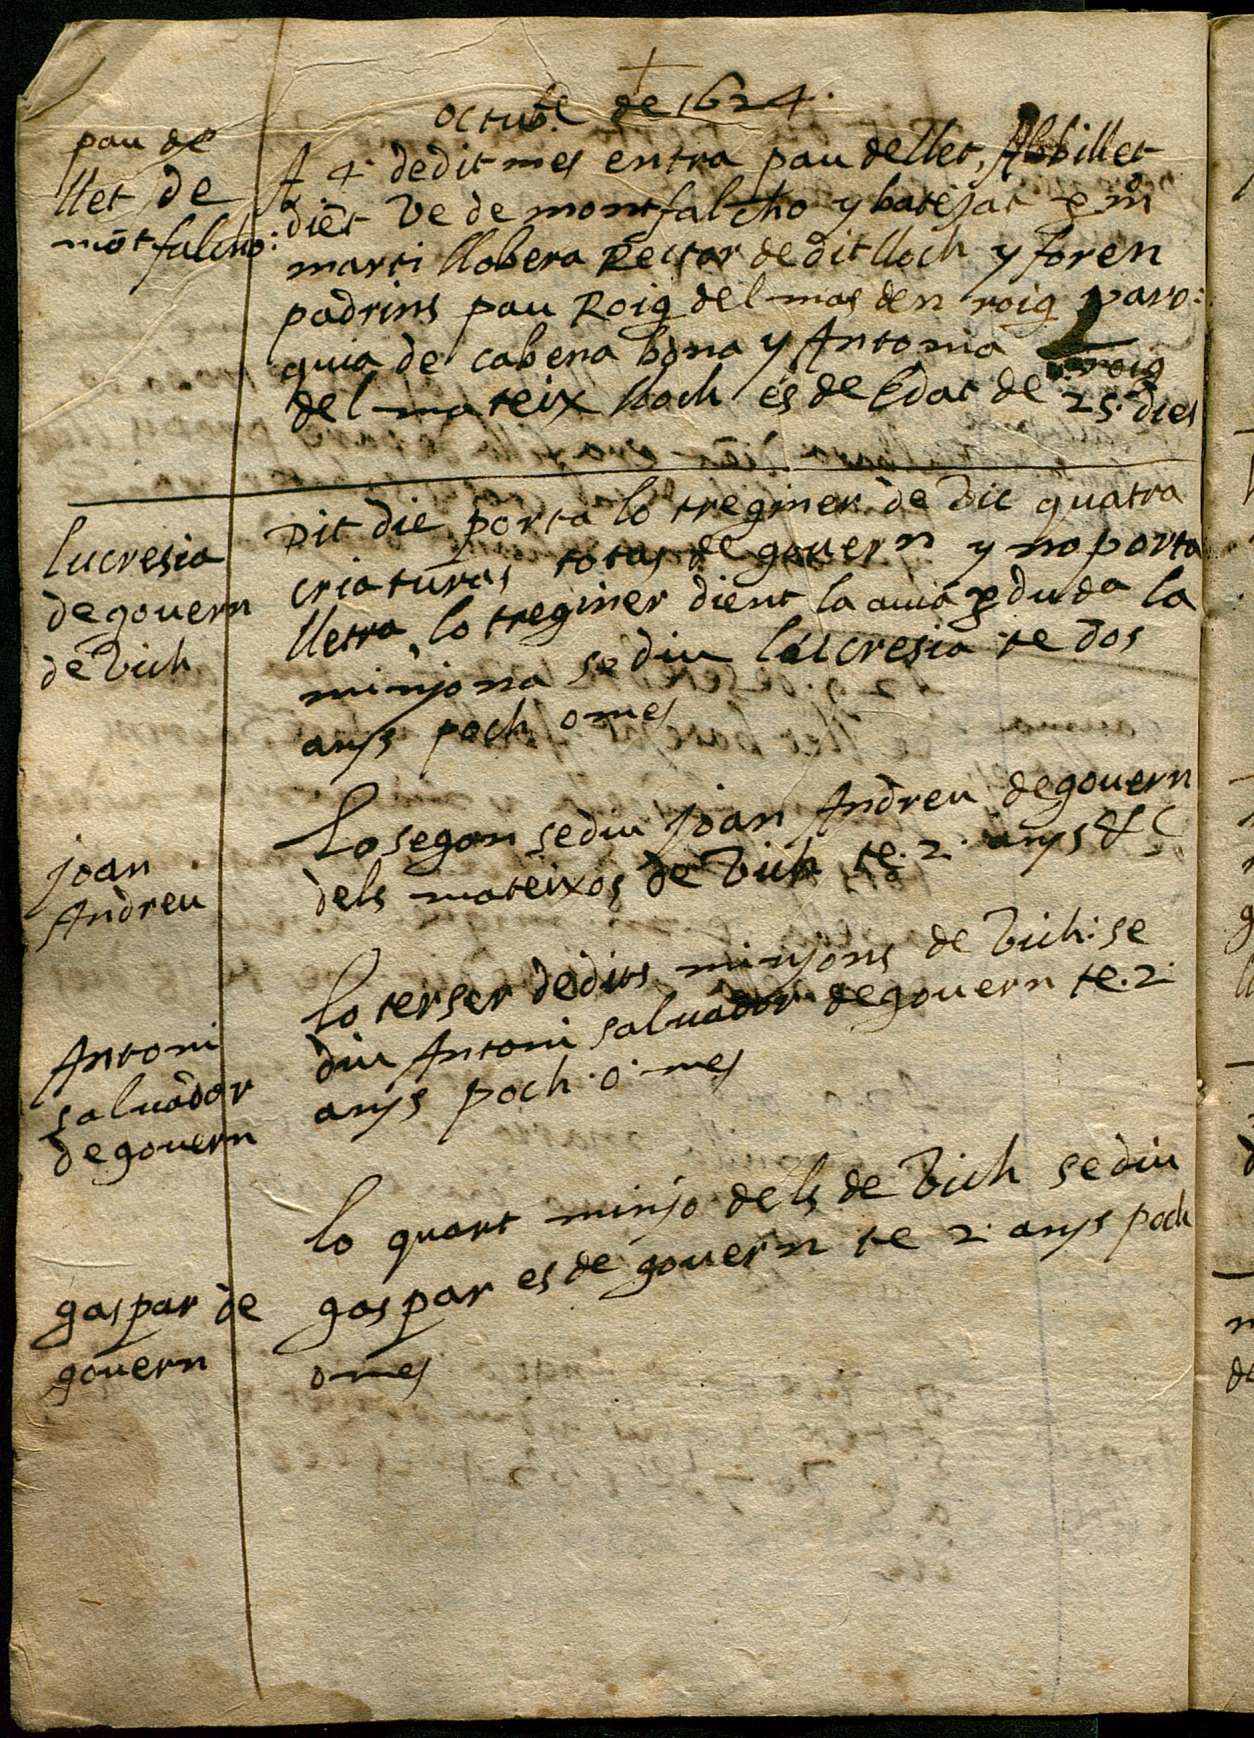 octub.e de 1624.
pau de
llet de
mōtfalcho:
A 4 de dit mes entra pau de llet, Ab billet
diēt ve de montfalcho y batejat p m.
marti llobera Rector de dit lloch y foren
padrins pau Roig del mas den roig paro:
quia de cabera bona y Antonia roig
del mateix lloch és de Edat de 25. dies
lucresia
de govern
de Vich
Dit die porta lo treginer de Vic quatra
criaturas totas de govern y no porta
lletra lo treginer dient la avia p duda la
minjona se diu lucresia te dos
anys poch o mes
joan
Andreu
Lo segon se diu joan Andreu de govern
dels mateixos de Vich te. 2. anys &c
Antoni
salvador
de govern
lo terser de dits minjons de Vich: se
diu Antoni salvador de govern te. 2.
anys poch. o. mes
gaspar de
govern
lo quart minjo dels de Vich se diu
gaspar es de govern te 2. anys poch
o mes